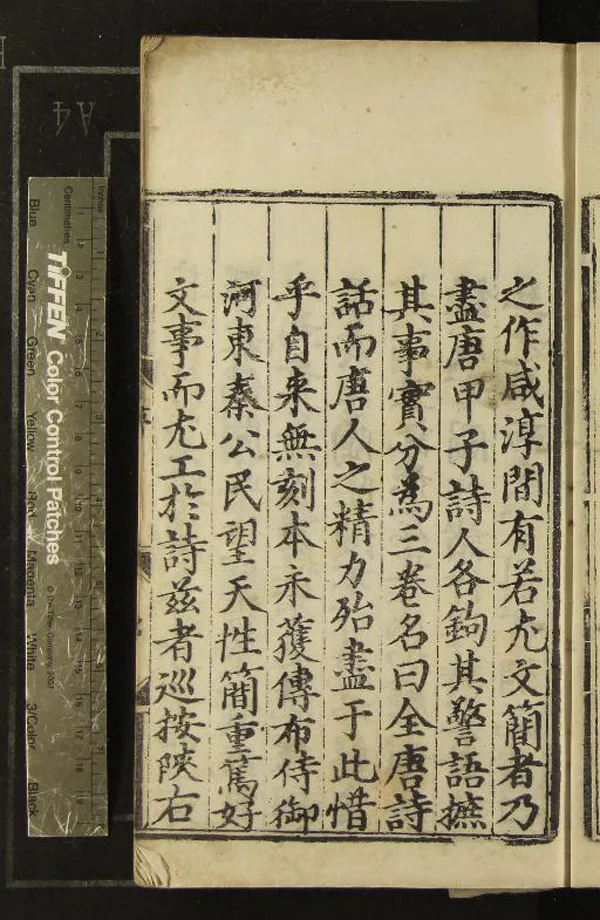 之作咸淳間有若尤文簡者乃
盡唐甲子詩人各鉤其警語摭
其事實分為三卷名曰全唐詩
話而唐人之精力殆盡于此惜
乎自来無刻本永獲傳布侍御
河東秦公民望天性簡重篤好
文事而尤工於詩兹者巡按陝右
A4
Inches
Centimetres
TIFFEN Color Control Patches
© The Tiffen Company, 2007
Blue
Cyan
Green
Yellow
Red
Magenta
White
3/Color
Black